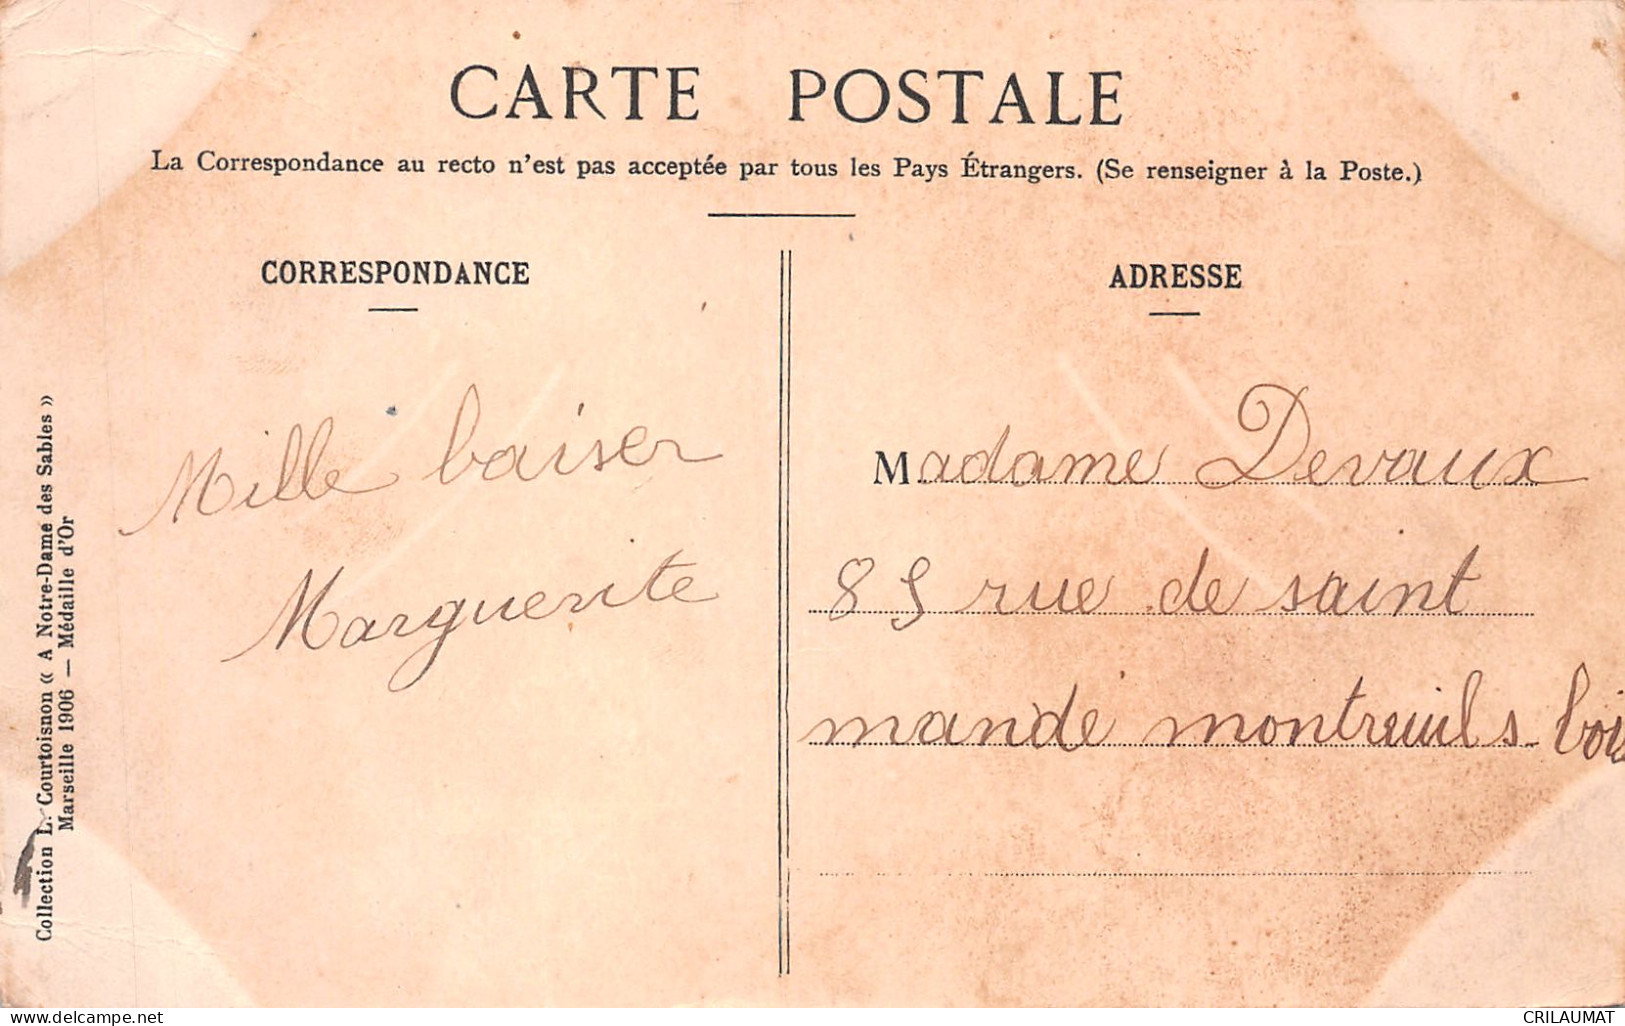 CARTE POSTALE
La Correspondance au recto n'est pas acceptée par tous les Pays Étrangers. (Se renseigner à la Poste.)
CORRESPONDANCE
Mille baiser
Marguerite
ADRESSE
Madame Devaux
85 rue de saint
mandé montreuils bois
Collection L. Courtoisnon « A Notre-Dame des Sables »
Marseille 1906 — Médaille d'Or
delcampe.net
CRILAUMAT